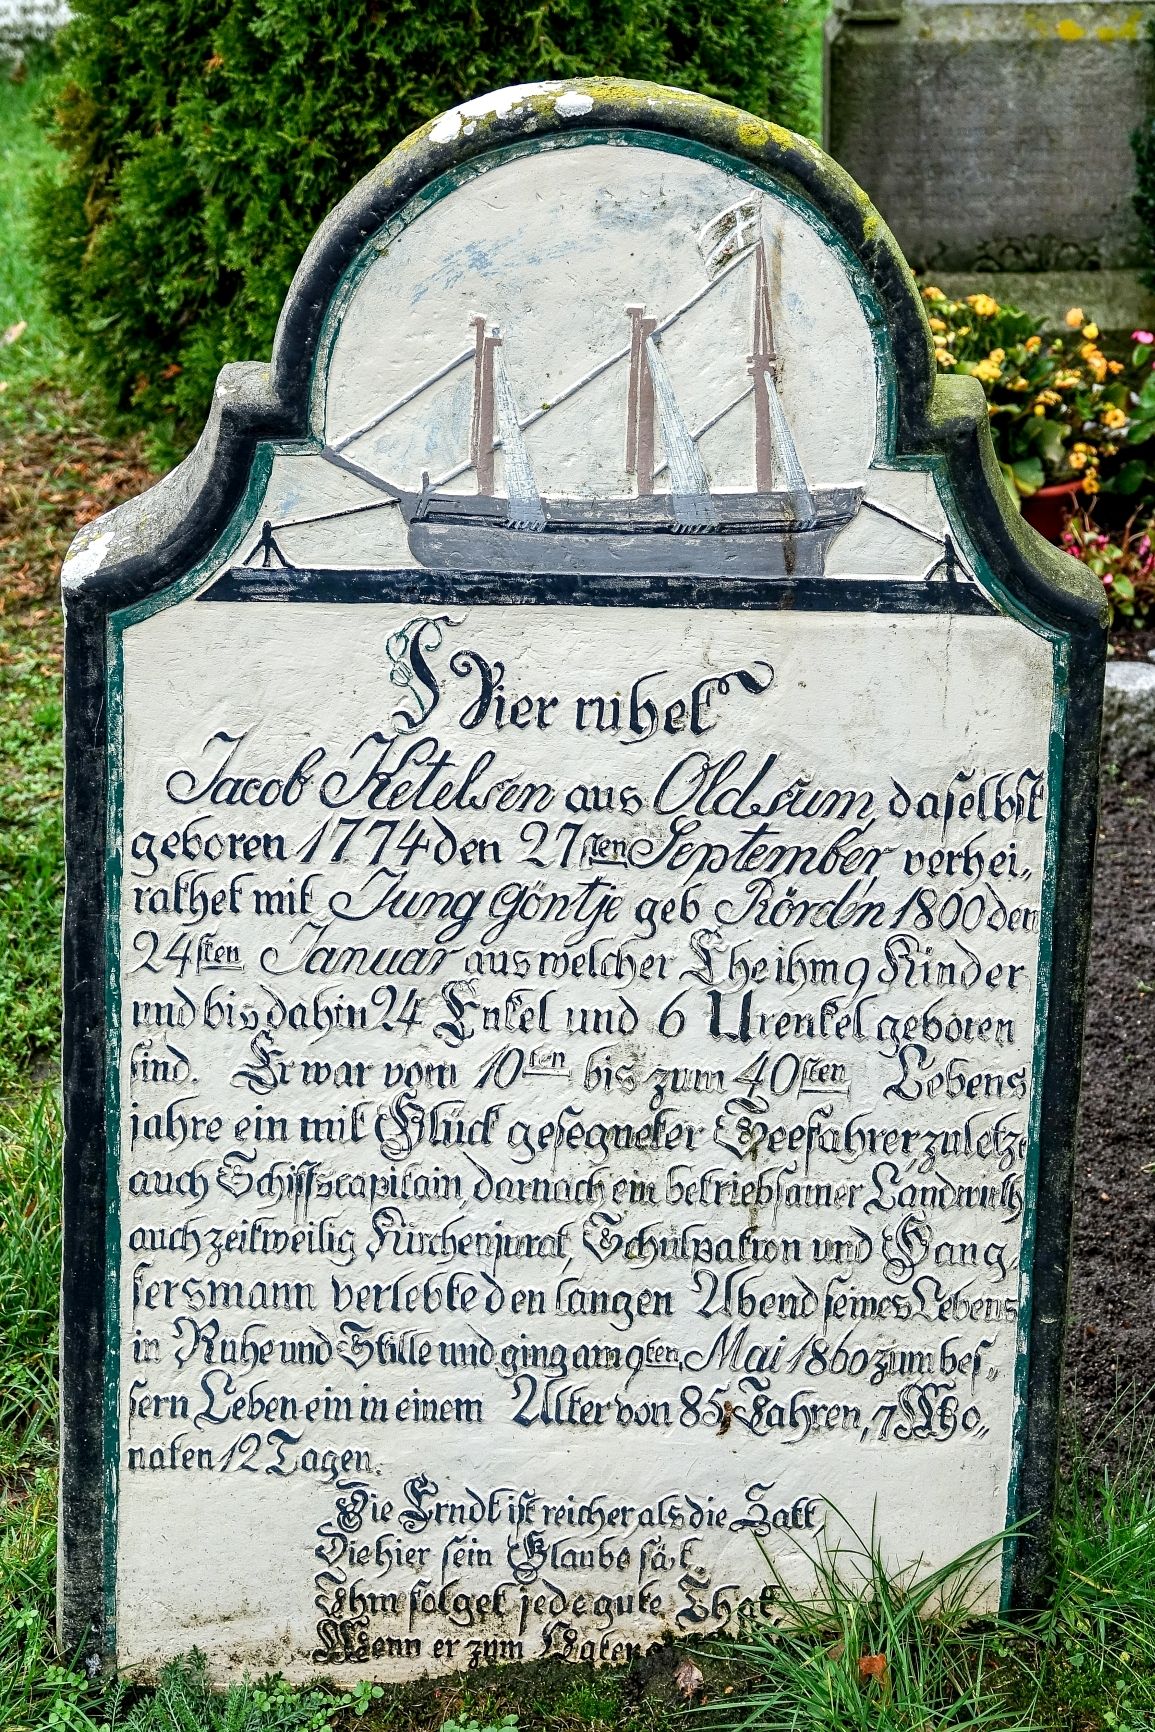 Hier ruhet
Jacob Ketelsen aus Oldsum, daselbst
geboren 1774 den 27sten September, verhei„
rathet mit Jung Göntje geb Rörd'n 1800 den
24sten Januar aus welcher Ehe ihm 9 Kinder
und bis dahin 24 Enkel und 6 Urenkel geboren
sind. Er war vom 10ten bis zum 40sten Lebens
jahre ein mit Glück gesegneter Seefahrer, zuletzt
auch Schiffscapitain, darnach ein betriebsamer Landwirth,
auch zeitweilig Kirchenjurat, Schulpatron und Gang„
fersmann verlebte den langen Abend seines Lebens
in Ruhe und Stille und ging am 9ten Mai 1860 zum bes„
sern Leben ein in einem Alter von 85 Jahren, 7 Mo„
naten 12 Tagen.
Die Erndt ist reicher als die Satt,
Die hier sein Glaube sä't.
Ihm folget jede gute That,
Wenn er zum Vater